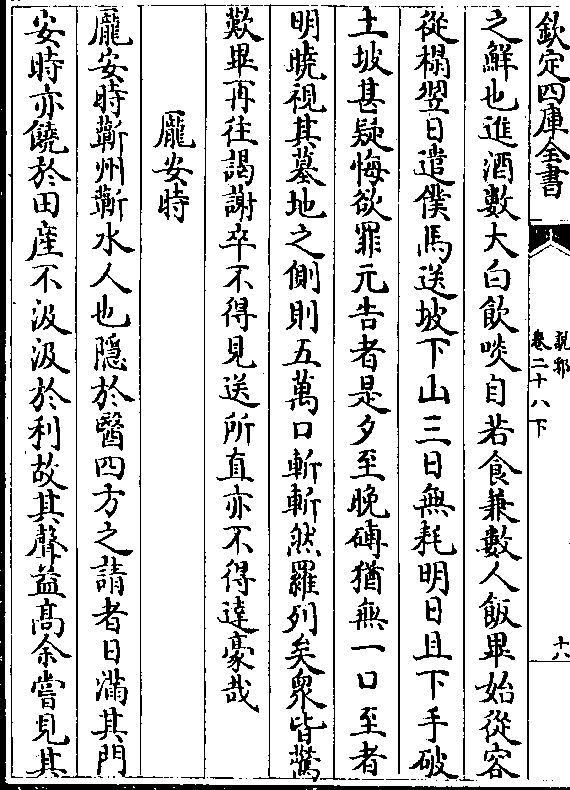 欽定四庫全書
說郛
卷二十八下
十八
之鮮也進酒數大白飲啖自若食兼數人飯畢始從容
從榻翌日遣僕馬送坡下山三日無耗明日且下手破
土坡甚疑悔欲罪元告者是夕至晚磚猶無一口至者
明曉視其墓地之側則五萬口斬斬然羅列矣衆皆驚
歎畢再往謁謝卒不得見送所直亦不得達豪哉
龎安時
龎安時蘄州蘄水人也隱於醫四方之請者日滿其門
安時亦饒於田産不汲汲於利故其聲益高余嘗見其